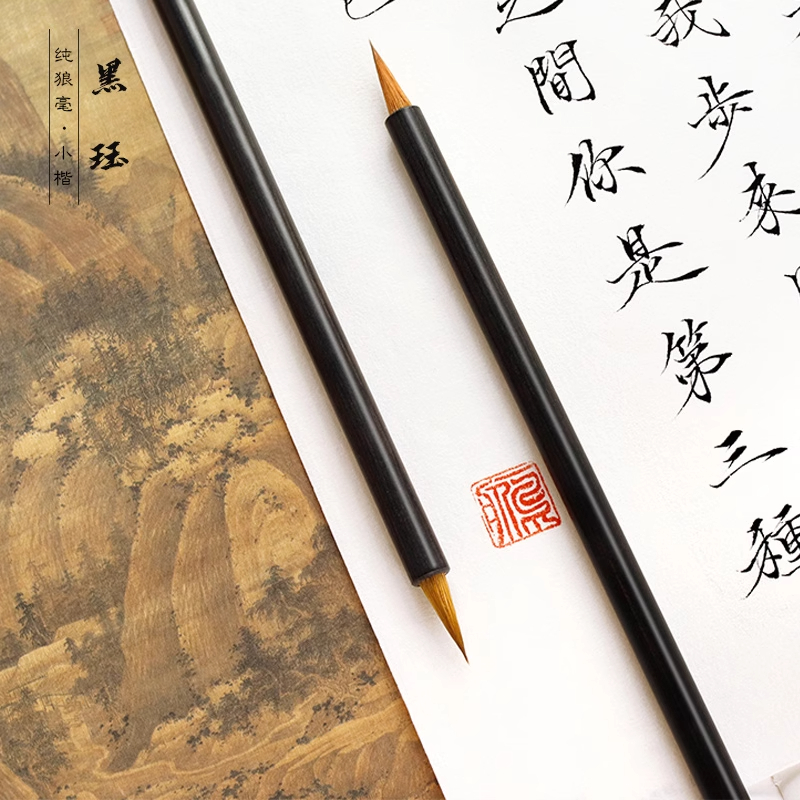 黑珏
纯狼毫·小楷
我步來
之間你是第三種